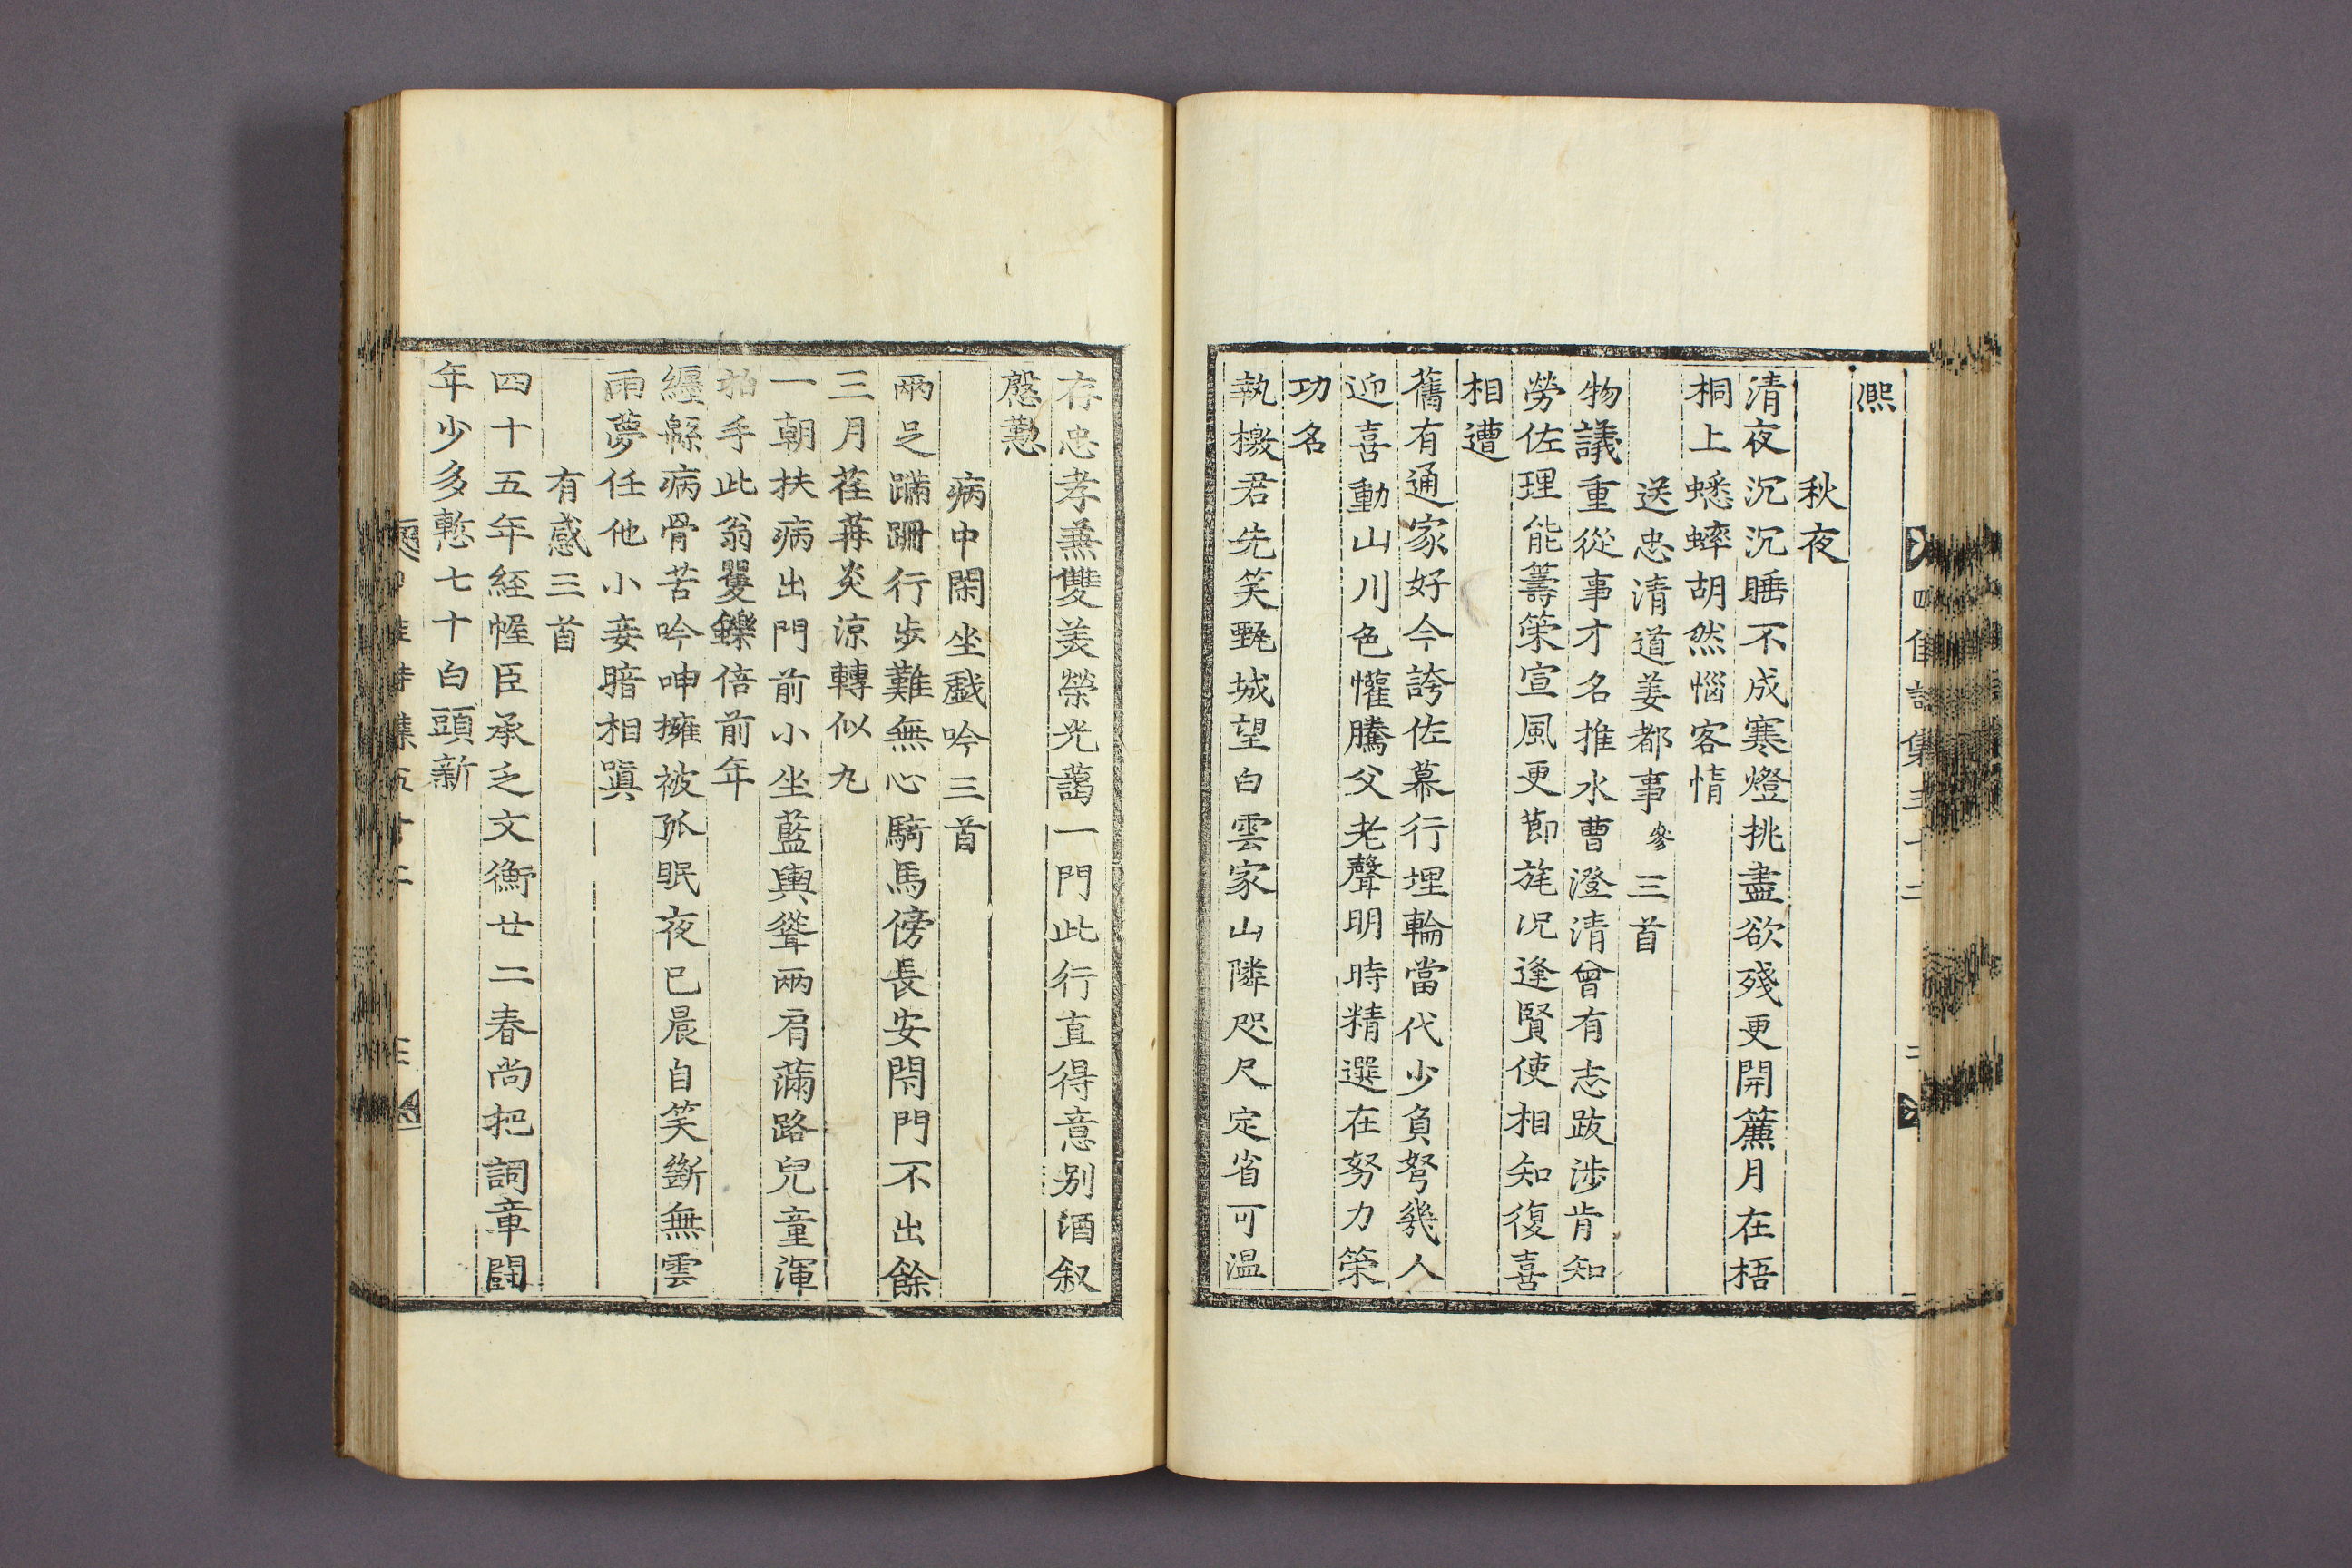 四佳詩集五十二
二
熙
秋夜
清夜沉沉睡不成寒燈挑盡欲殘更開簾月在梧
桐上蟋蟀胡然惱客情
送忠清道姜都事參三首
物議重從事才名推水曹澄清曾有志跋涉肯知
勞佐理能籌策宣風更節旄况逢賢使相知復喜
相遭
舊有通家好今誇佐幕行埋輪當代少負弩幾人
迎喜動山川色懽騰父老聲明時精選在努力策
功名
執檄君先笑甄城望白雲家山隣咫尺定省可温
存忠孝兼雙美榮光藹一門此行直得意别酒叙
慇懃
病中閑坐戱吟三首
兩足蹣跚行步難無心騎馬傍長安閉門不出餘
三月荏苒炎涼轉似丸
一朝扶病出門前小坐藍輿聳兩肩滿路兒童渾
拍手此翁矍鑠倍前年
纏緜病骨苦吟呻擁被孤眠夜已晨自笑斷無雲
雨夢任他小妾暗相嗔
有感三首
四十五年經幄臣承乏文衡廿二春尚把詞章鬪
年少多慙七十白頭新
三